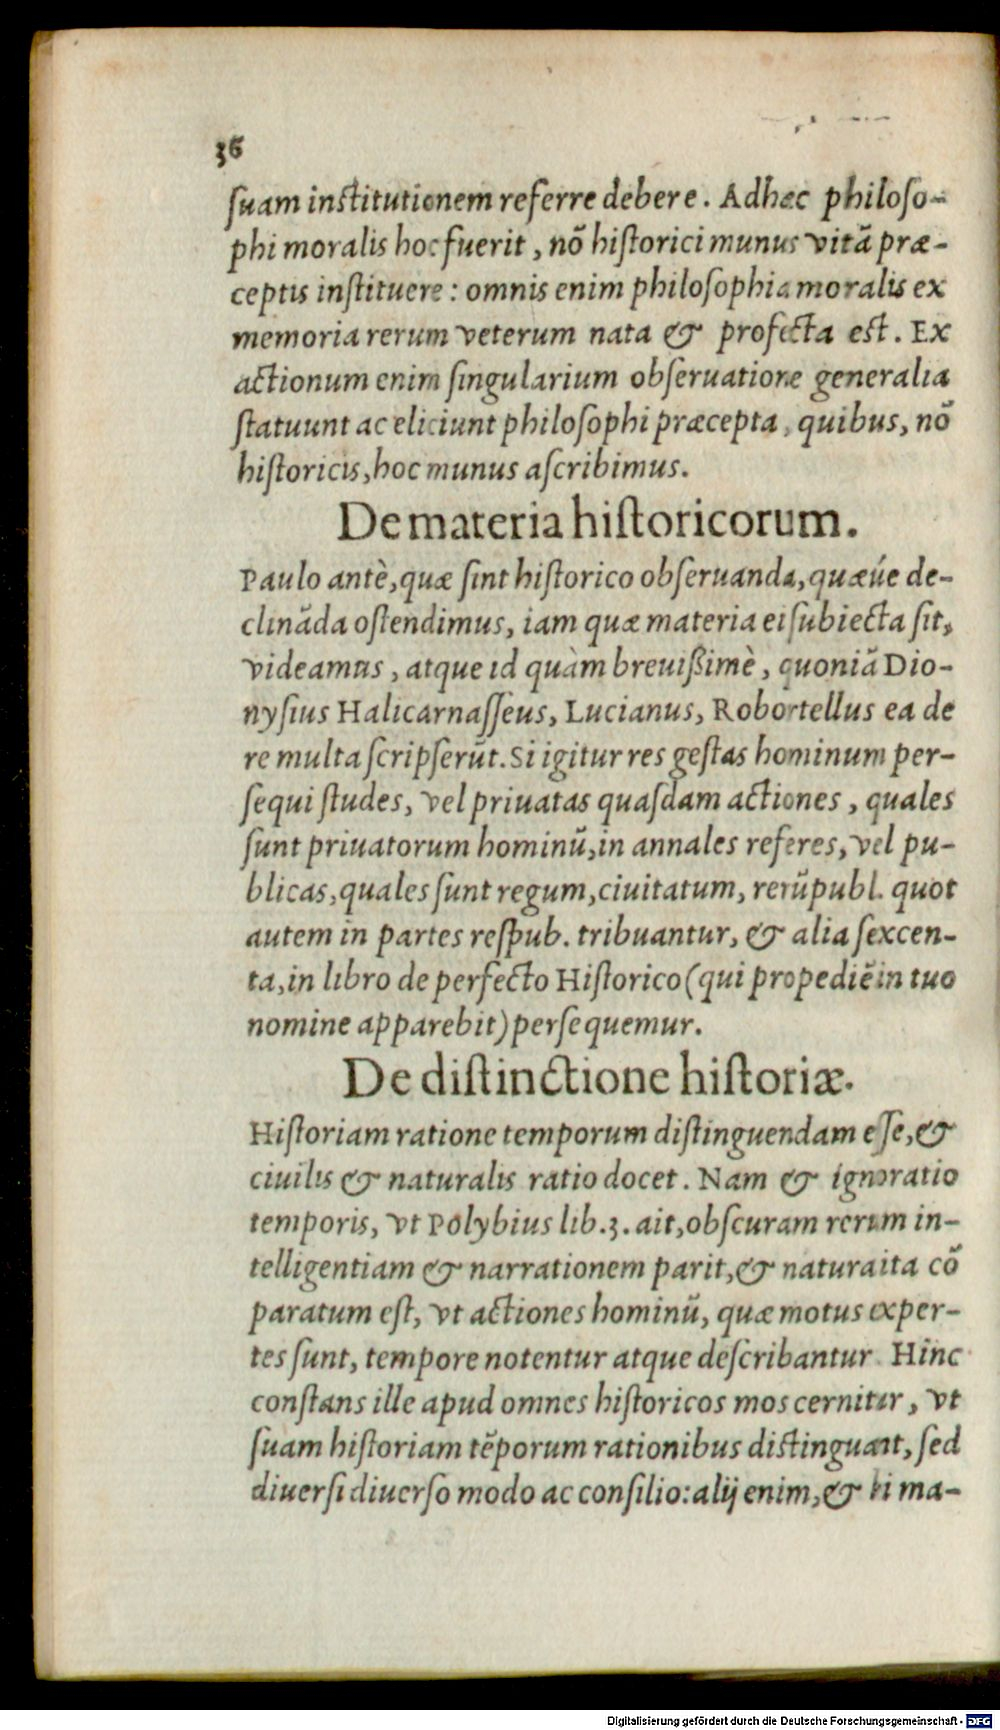 36
ſuam inſtitutionem referre debere. Adhæc philoſo-
phi moralis hoc fuerit, nõ hiſtorici munus vitã præ-
ceptis inſtituere: omnis enim philoſophia moralis ex
memoria rerum veterum nata & profecta eſt. Ex
actionum enim ſingularium obſeruatione generalia
ſtatuunt ac eliciunt philoſophi præcepta, quibus, nõ
hiſtoricis, hoc munus aſcribimus.
De materia hiſtoricorum.
Paulo antè, quæ ſint hiſtorico obſeruanda, quæúe de-
clinãda oſtendimus, iam quæ materia ei ſubiecta ſit,
videamus, atque id quàm breuißimè, quoniã Dio-
nyſius Halicarnaſſeus, Lucianus, Robortellus ea de
re multa ſcripſerũt. Si igitur res geſtas hominum per-
ſequi ſtudes, vel priuatas quaſdam actiones, quales
ſunt priuatorum hominũ, in annales referes, vel pu-
blicas, quales ſunt regum, ciuitatum, rerũpubl. quot
autem in partes reſpub. tribuantur, & alia ſexcen-
ta, in libro de perfecto Hiſtorico (qui propediẽ in tuo
nomine apparebit) perſequemur.
De diſtinctione hiſtoriæ.
Hiſtoriam ratione temporum diſtinguendam eſſe, &
ciuilis & naturalis ratio docet. Nam & ignoratio
temporis, vt Polybius lib. 3. ait, obſcuram rerum in-
telligentiam & narrationem parit, & natura ita cõ
paratum eſt, vt actiones hominũ, quæ motus exper-
tes ſunt, tempore notentur atque deſcribantur. Hinc
conſtans ille apud omnes hiſtoricos mos cernitur, vt
ſuam hiſtoriam tẽporum rationibus diſtinguant, ſed
diuerſi diuerſo modo ac conſilio: alij enim, & hi ma-
Digitalisierung gefördert durch die Deutsche Forschungsgemeinschaft - DFG